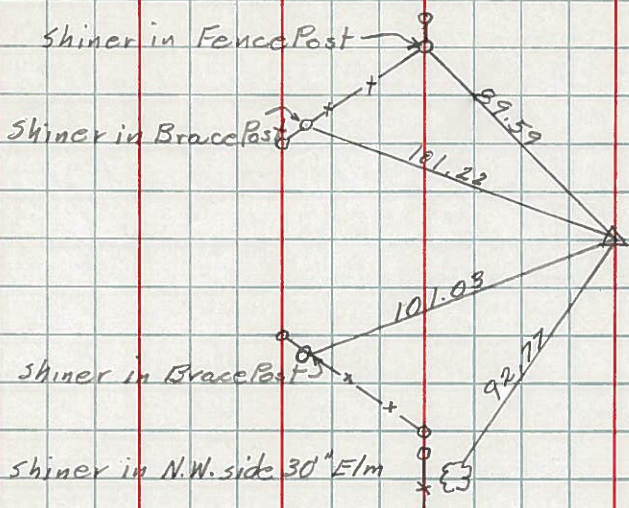 Shiner in Fence Post
89.59
Shiner in Brace Post
101.22
101.03
Shiner in Brace Post
92.77
Shiner in N.W. side 30" Elm